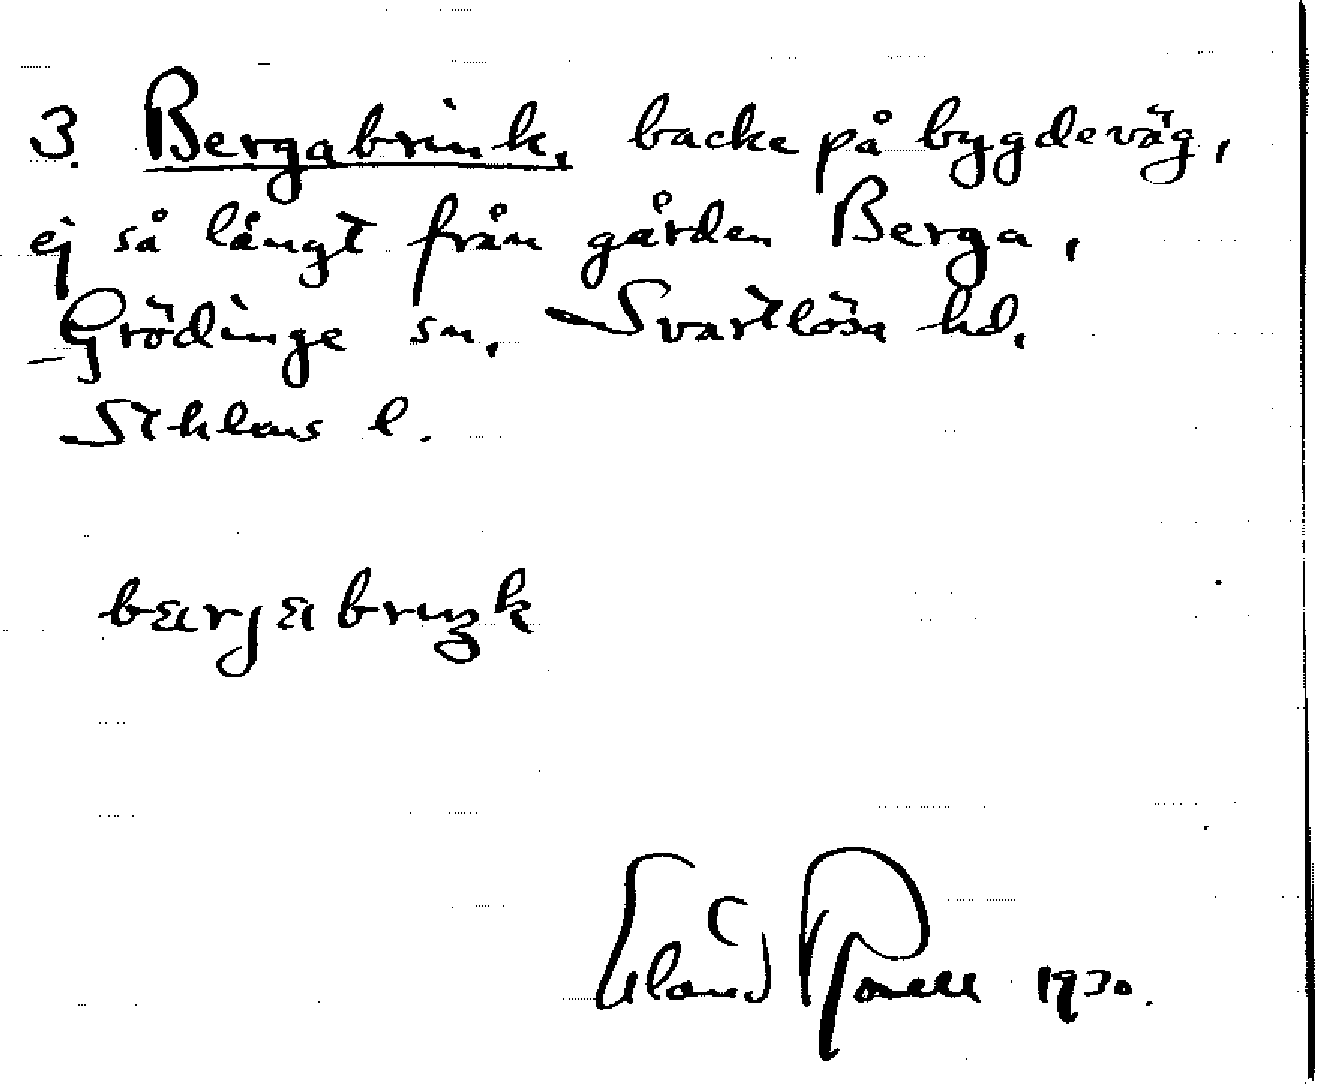 3. Bergabrink, backe på bygdeväg,
ej så långt från gården Berga,
Grödinge sn. Svartlösa hd.
Sthlms l.
1930.